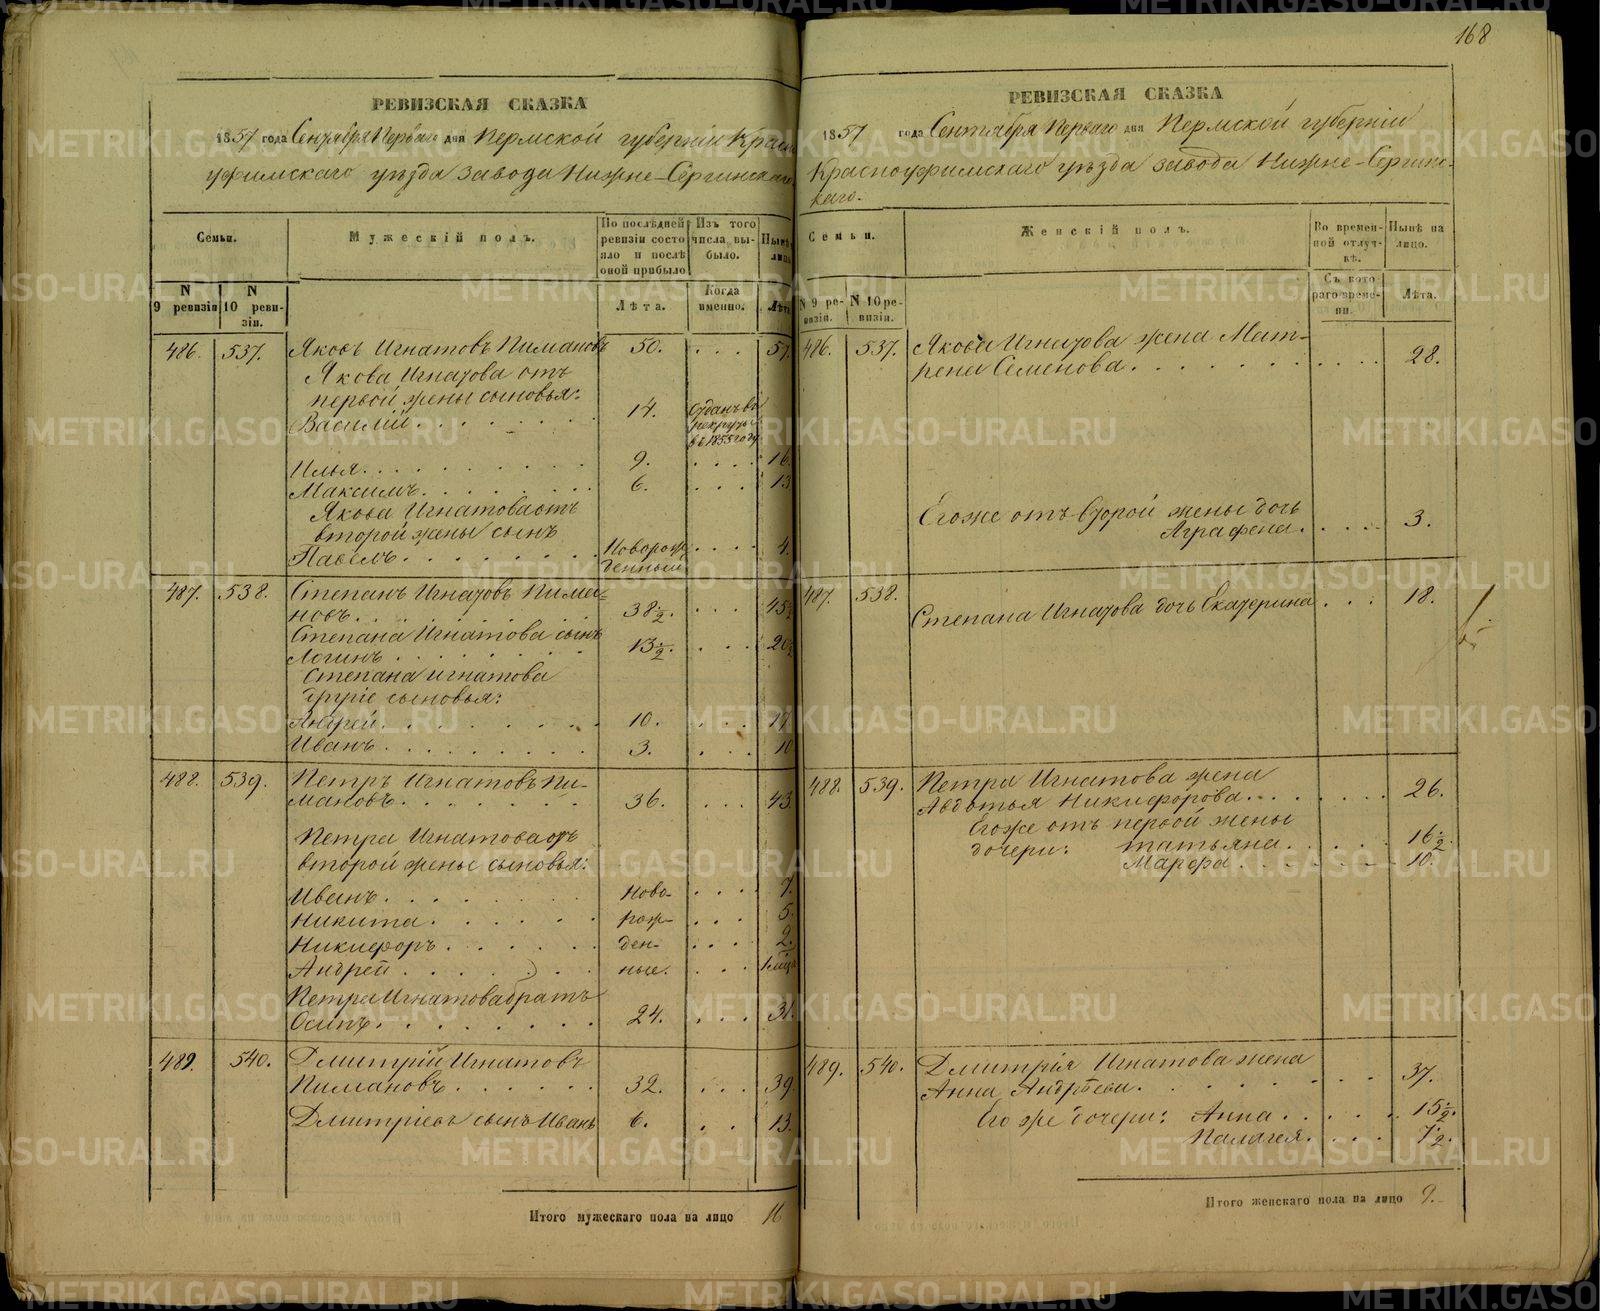 168
РЕВИЗСКАЯ СКАЗКА
1857 года Сентября Перваго дня Пермской губернiи Красно
уфимскаго уѣзда завода Нижне-Сергинскаго
Семьи.
Мужескiй полъ.
По послѣдней ревизiи состояло и послѣ оной прибыло
Изъ того числа выбыло.
Нынѣ
лицо
N 9 ревизiи
N 10 ревизiи.
Лѣта.
Когда именно.
Лѣта
486. 537. Яковъ Игнатовъ Пимановъ 50. . . . 57.
Якова Игнатова отъ
первой жены сыновья:
Василiй. 14. Отданъ въ рекруты въ 1855 году
Илья. 9. . . . 16.
Максимъ. 6. . . . 13
Якова Игнатова отъ
второй жены сынъ
Павелъ. Новорожденный . . . 4.
487. 538. Степанъ Игнатовъ Пима-
новъ. 38½. . . . 45½
Степана Игнатова сынъ
Логинъ. 13½. . . . 20½
Степана Игнатова
другiе сыновья:
Андрей. 10. . . . 17
Иванъ. 3. . . . 10
488. 539. Петръ Игнатовъ Пи-
мановъ. 36. . . . 43
Петра Игнатова отъ
второй жены сыновья:
Иванъ. Ново- . . . 7.
Никита. рож- . . . 5.
Никифоръ. ден- . . . 2.
Андрей. ные. . . .
Петра Игнатова братъ
Осипъ. 24. . . . 31.
489. 540. Дмитрiй Игнатовъ
Пимановъ. 32. . . . 39.
Дмитрiевъ сынъ Иванъ 6. . . 13.
Итого мужескаго пола на лицо 16
РЕВИЗСКАЯ СКАЗКА
1857 года Сентября Перваго дня Пермской губернiи
Красноуфимскаго уѣзда завода Нижне-Сергинс-
каго.
Семьи.
Женскiй полъ.
Во временной отлучкѣ.
Нынѣ на лицо.
N 9 ревизiи.
N 10 ревизiи.
Съ котораго времени.
Лѣта.
486. 537. Якова Игнатова жена Мат-
рена Семенова. 28.
Его же отъ второй жены дочь
Аграфена. 3.
487. 538. Степана Игнатова дочь Екатерина . . . 18.
488. 539. Петра Игнатова жена
Авдотья Никифорова. 26.
Его же отъ первой жены
дочери: Татьяна. 16½.
Марфа. 10.
489. 540. Дмитрiя Игнатова жена
Анна Андрѣева. 37.
Его же дочери: Анна. 15½.
Палагея. 7½.
Итого женскаго пола на лицо 9.
METRIKI.GASO-URAL.RU